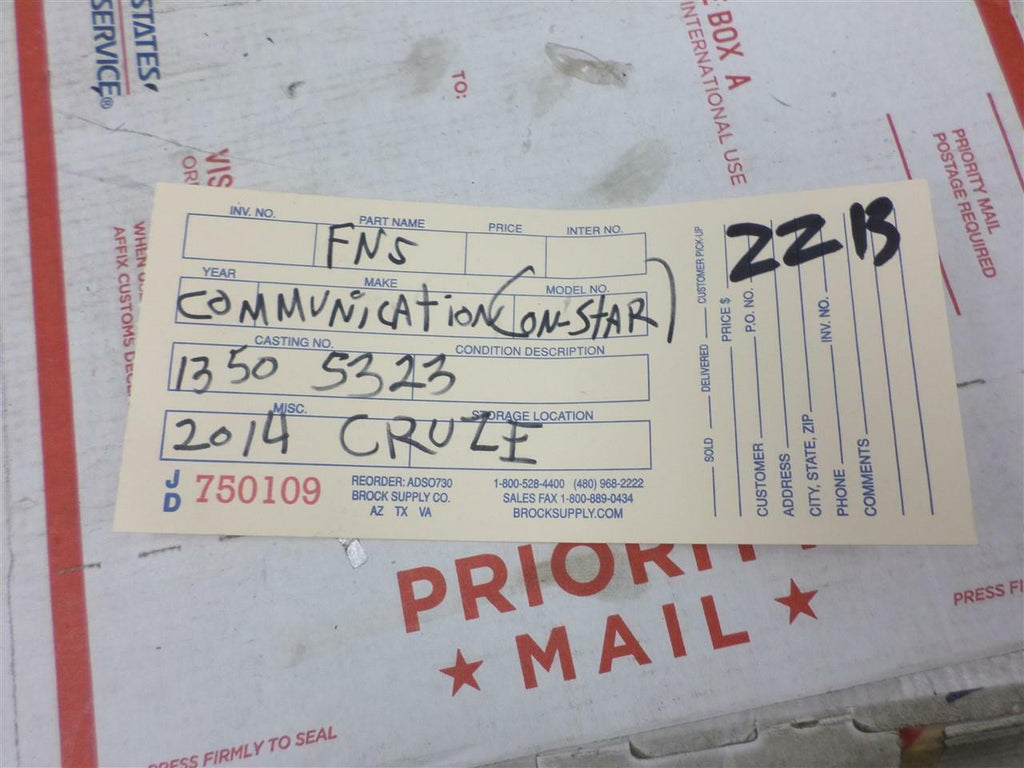 STATES
SERVICE®
TO:
E BOX A
INTERNATIONAL USE
PRIORITY MAIL
POSTAGE REQUIRED
VIS
WHEN
AFFIX CUSTOMS DECL
INV. NO. PART NAME PRICE INTER NO.
FNS
YEAR MAKE MODEL NO.
COMMUNICATION (ON-STAR)
CASTING NO. CONDITION DESCRIPTION
1350 5323
MISC. STORAGE LOCATION
2014 CRUZE
JD 750109
REORDER: ADSO730
BROCK SUPPLY CO.
AZ TX VA
1-800-528-4400 (480) 968-2222
SALES FAX 1-800-889-0434
BROCKSUPPLY.COM
22B
SOLD DELIVERED CUSTOMER PICK-UP
PRICE $
CUSTOMER P.O. NO.
ADDRESS
CITY, STATE, ZIP INV. NO.
PHONE
COMMENTS
PRIORITY
★ MAIL ★
PRESS FI
PRESS FIRMLY TO SEAL